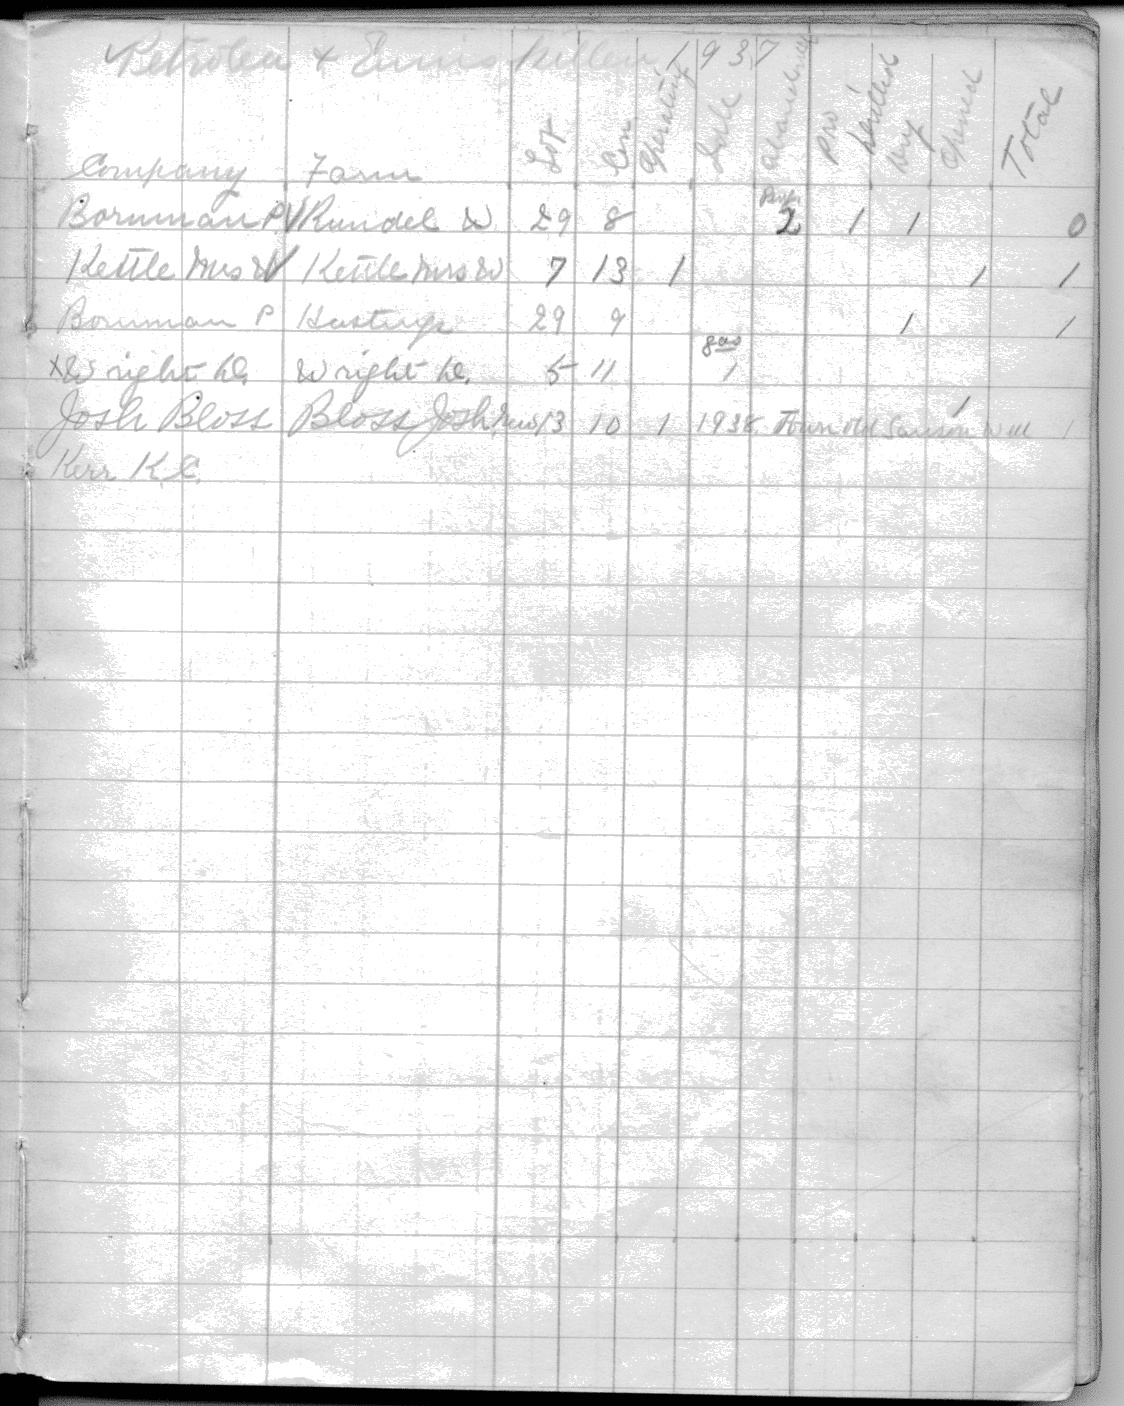 Petrolea + Ennis Killen 1937
Company Farm Lot Con Operating Idle Abandoned Pro Drilled Dry Opened Total
Bornman P. √ Rundel W 29 8 2 1 1 0
Kettle Mrs W √ Kettle Mrs W 7 13 1 1 1
Bornman P Hastings 29 9 1 1
gas
x Wright D. Wright D. 5 11 1
Josh Bloss Bloss Josh 13 10 1 1938 1 Well 1
Kerr K.C.